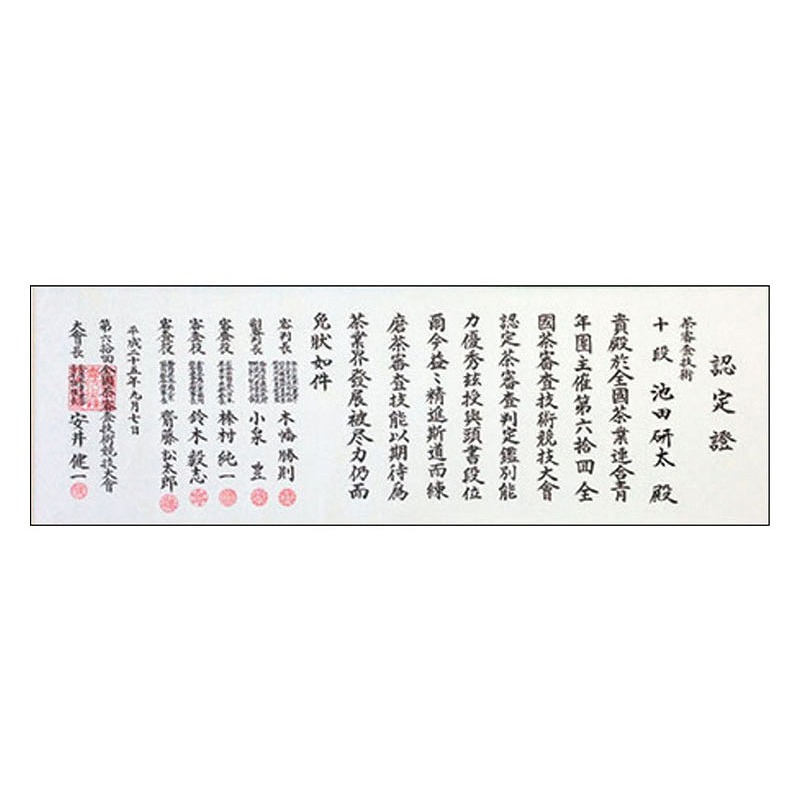 認定證
茶審査技術
十段 池田研太 殿
貴殿於全國茶業連合青
年團主催第六拾回全
國茶審査技術競技大會
認定茶審査判定鑑別能
力優秀玆授與頭書段位
爾今益〻精進斯道而練
磨茶審査技能以期待為
茶業界發展被尽力仍而
免状如件
審判長 木幡勝則
副審判長 小泉豊
審査役 椿村純一
審査役 鈴木毅志
審査役 齋藤松太郎
平成二十五年九月七日
第六拾回全國茶審査技術競技大會
大會長 安井健一